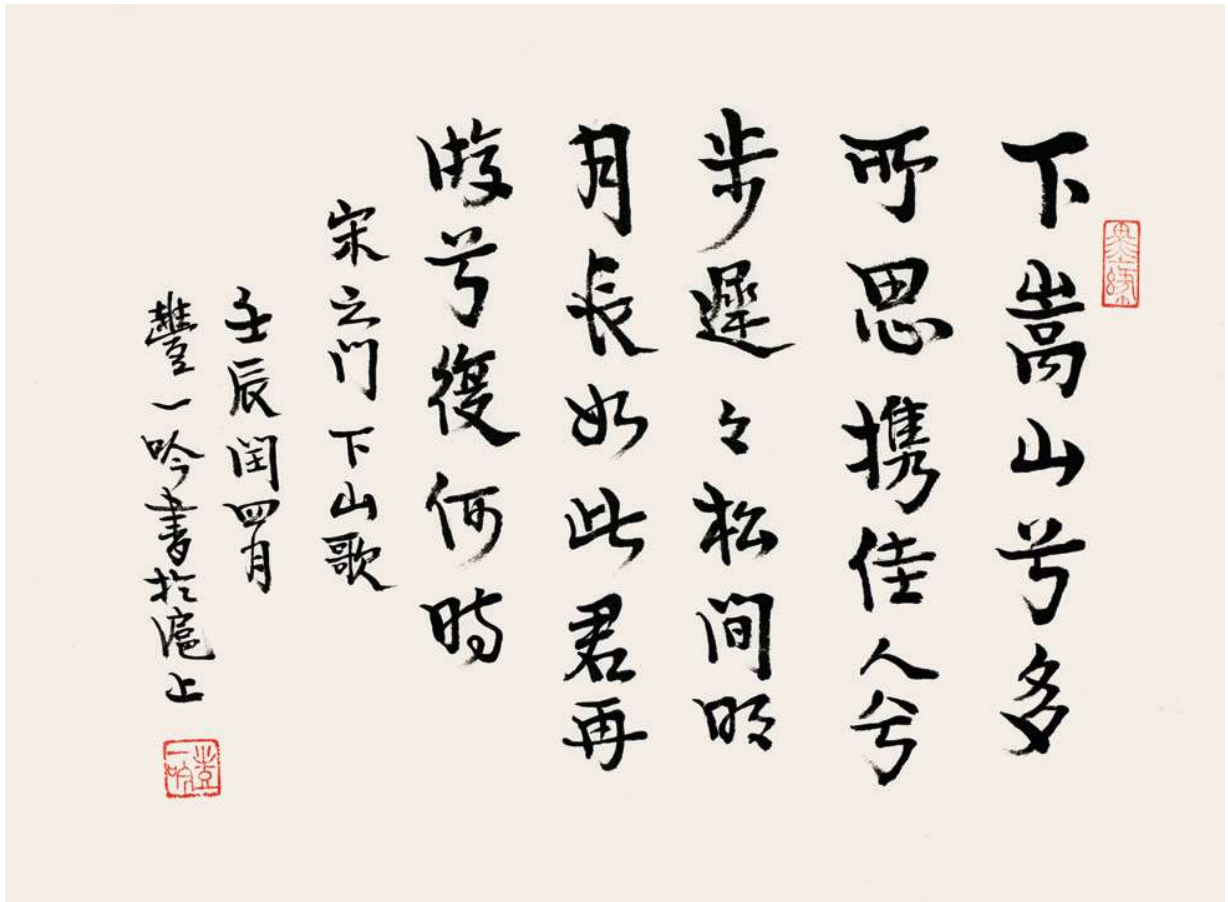 下嵩山兮多
所思携佳人兮
步遲々松間明
月長如此君再
游兮復何時
宋之问下山歌
壬辰闰四月
豐一吟書於滬上
豐一吟